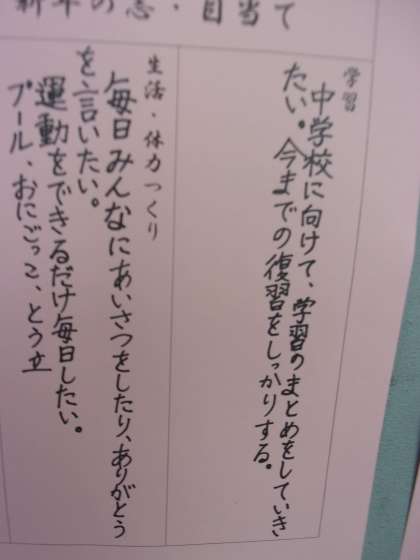 新年の志・目当て
学習
中学校に向けて、学習のまとめをしていき
たい。今までの復習をしっかりする。
生活・体力つくり
毎日みんなにあいさつをしたり、ありがとう
を言いたい。
運動をできるだけ毎日したい。
プール、おにごっこ、とう立